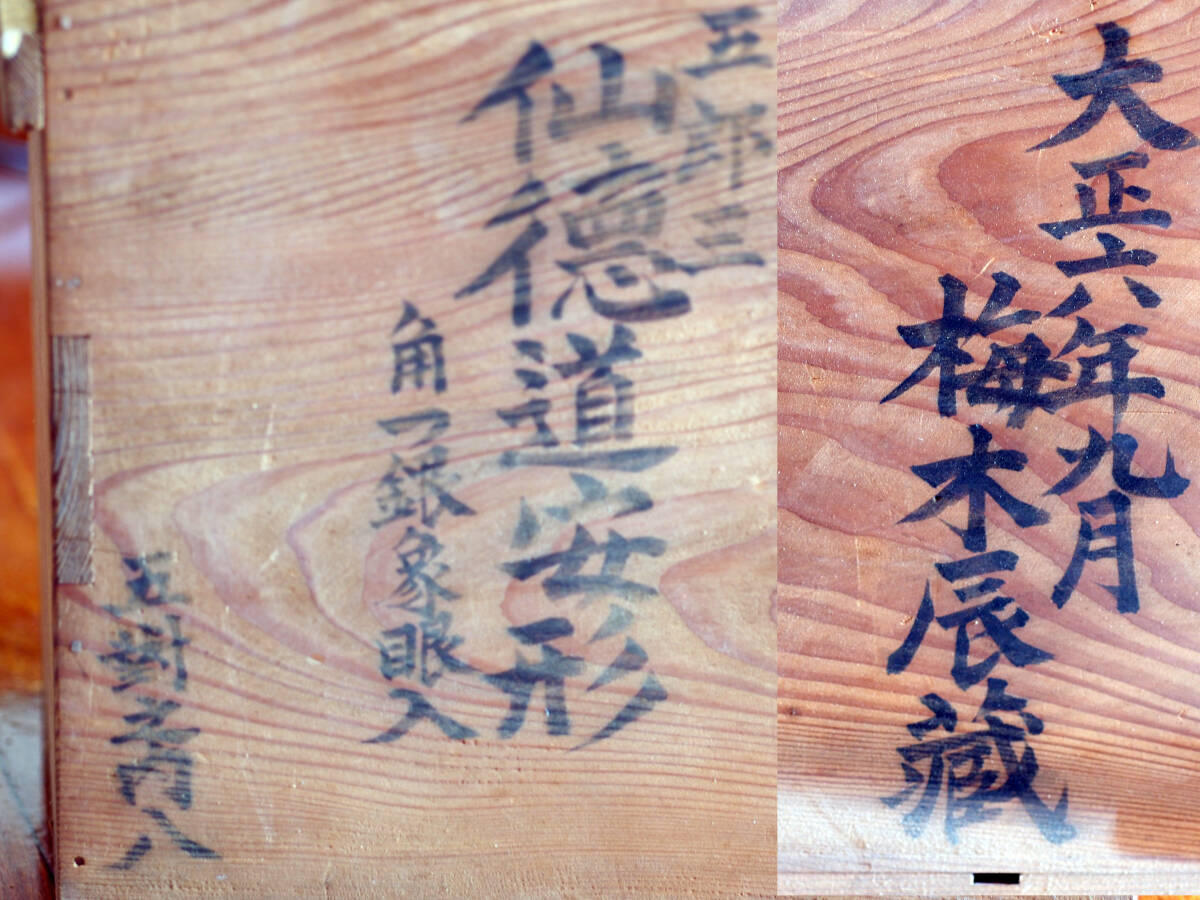 大正六年九月
梅木辰藏
五郎三
仙徳道安形
角つ銀象眼入
五 之内八